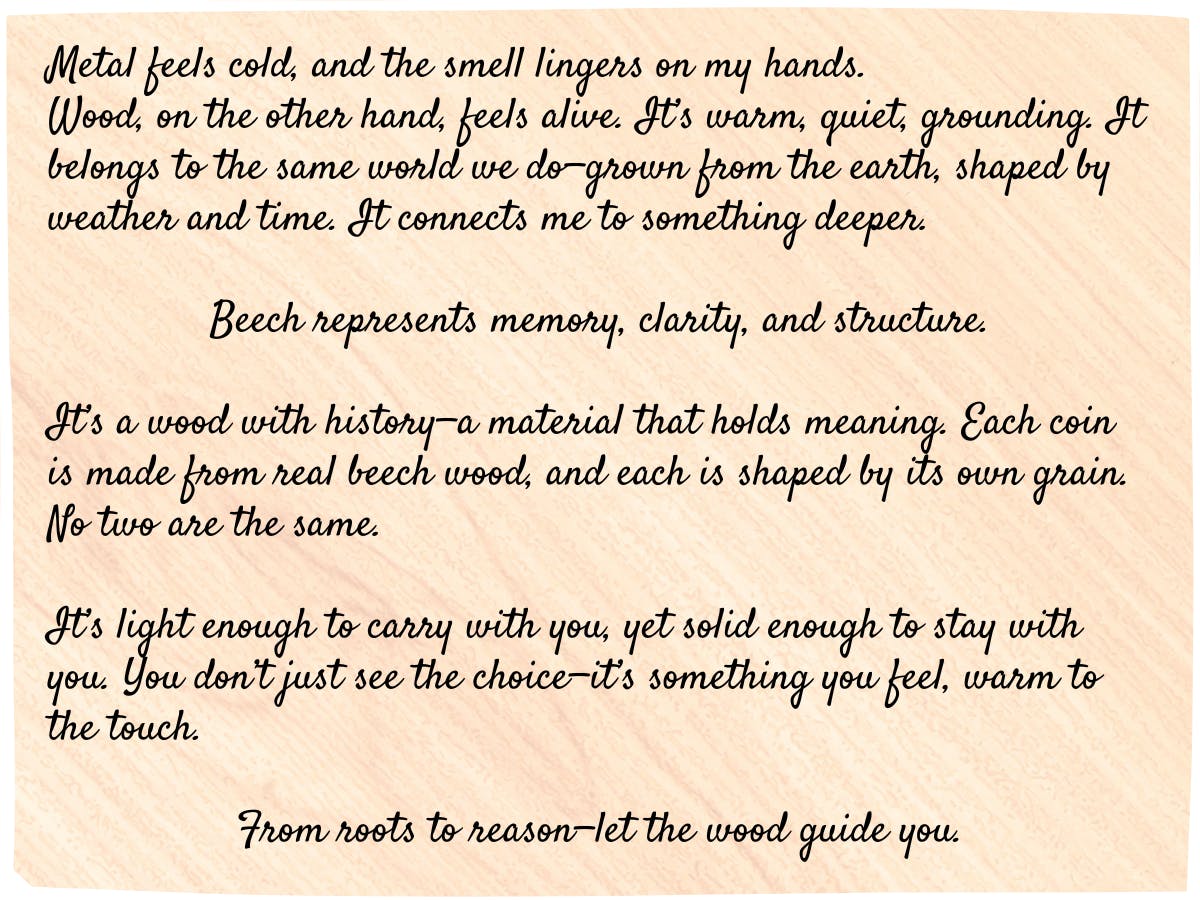 Metal feels cold, and the smell lingers on my hands.
Wood, on the other hand, feels alive. It's warm, quiet, grounding. It
belongs to the same world we do—grown from the earth, shaped by
weather and time. It connects me to something deeper.
Beech represents memory, clarity, and structure.
It's a wood with history—a material that holds meaning. Each coin
is made from real beech wood, and each is shaped by its own grain.
No two are the same.
It's light enough to carry with you, yet solid enough to stay with
you. You don't just see the choice—it's something you feel, warm to
the touch.
From roots to reason—let the wood guide you.